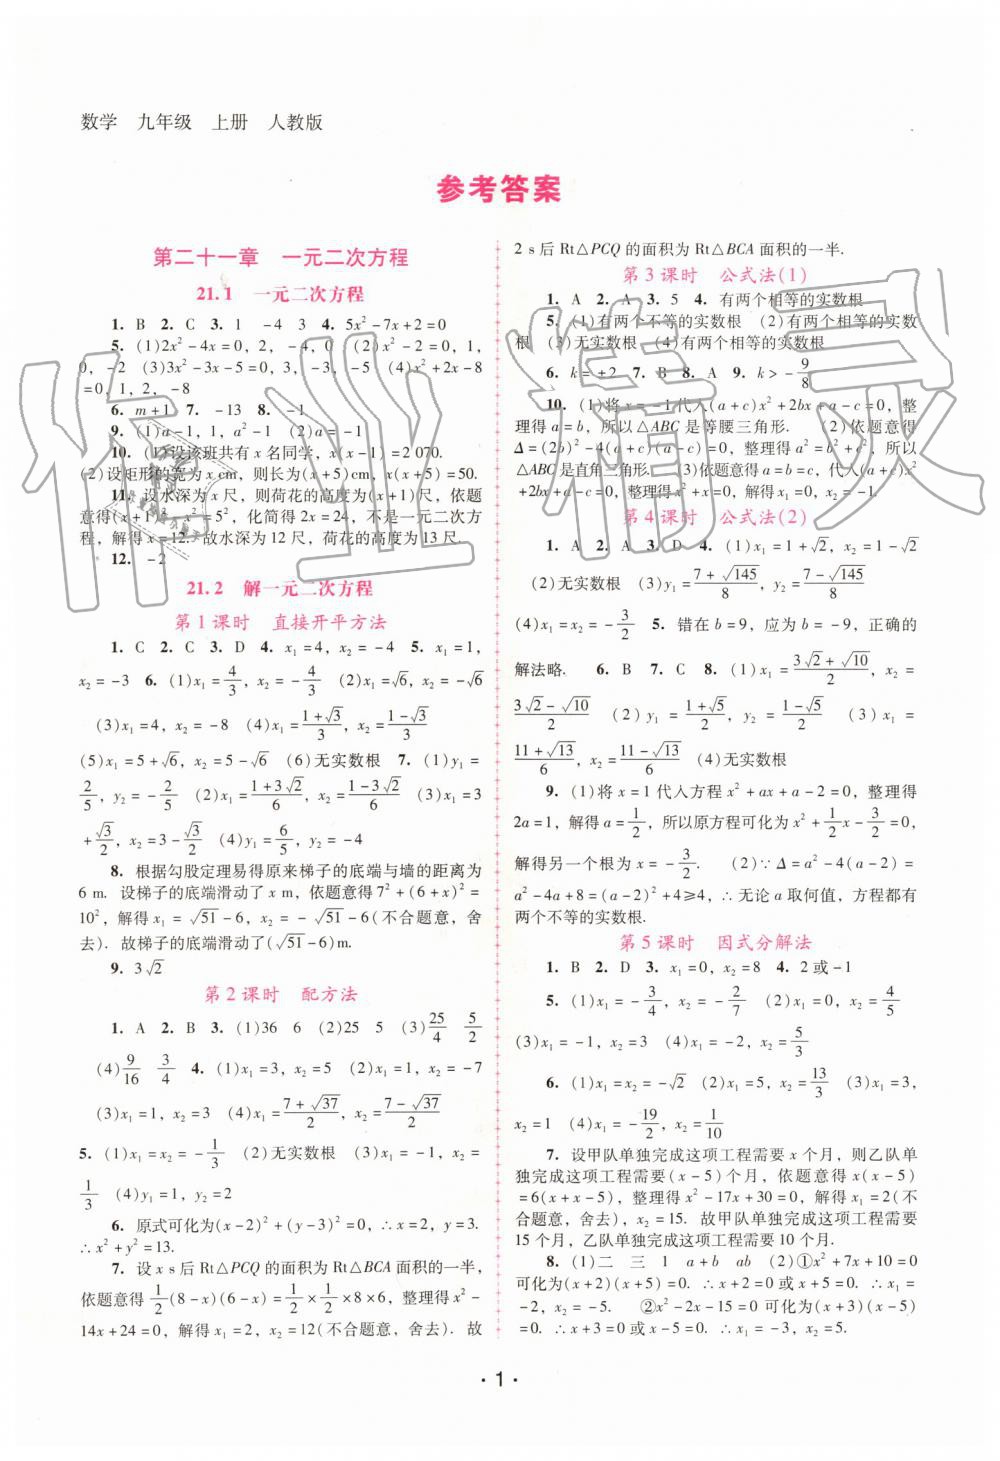 数学 九年级 上册 人教版
参考答案
第二十一章 一元二次方程
21.1 一元二次方程
1. B 2. C 3. 1 -4 3 4. 5x²-7x+2=0
5. (1)2x²-4x=0, 2, -4, 0 (2)x²-2=0, 1,
0, -2 (3)3x²-3x-5=0, 3, -3, -5 (4)x²+2x-8
=0, 1, 2, -8
6. m+1 7. -13 8. -1
9. (1)a-1, 1, a²-1 (2)a=-1
10. (1)设该班共有 x 名同学, x(x-1)=2 070.
(2)设矩形的宽为 x cm, 则长为(x+5)cm, x(x+5)=50.
11. 设水深为 x 尺, 则荷花的高度为(x+1)尺, 依题
意得(x+1)²-x²=5², 化简得 2x=24, 不是一元二次方
程, 解得 x=12. 故水深为 12 尺, 荷花的高度为 13 尺.
12. -2
21.2 解一元二次方程
第 1 课时 直接开平方法
1. C 2. C 3. D 4. x₁=4, x₂=-4 5. x₁=1,
x₂=-3 6. (1)x₁=4/3, x₂=-4/3 (2)x₁=√6, x₂=-√6
(3)x₁=4, x₂=-8 (4)x₁=(1+√3)/3, x₂=(1-√3)/3
(5)x₁=5+√6, x₂=5-√6 (6)无实数根 7. (1)y₁=
2/5, y₂=-2/5 (2)x₁=(1+3√2)/6, x₂=(1-3√2)/6 (3)x₁=3
+√3/2, x₂=3-√3/2 (4)y₁=6/5, y₂=-4
8. 根据勾股定理易得原来梯子的底端与墙的距离为
6 m. 设梯子的底端滑动了 x m, 依题意得 7²+(6+x)²=
10², 解得 x₁=√51-6, x₂=-√51-6(不合题意, 舍
去). 故梯子的底端滑动了(√51-6)m.
9. 3√2
第 2 课时 配方法
1. A 2. B 3. (1)36 6 (2)25 5 (3)25/4 5/2
(4)9/16 3/4 4. (1)x₁=3, x₂=5 (2)x₁=1, x₂=-7
(3)x₁=1, x₂=3 (4)x₁=(7+√37)/2, x₂=(7-√37)/2
5. (1)x₁=x₂=-1/3 (2)无实数根 (3)x₁=-1, x₂=
1/3 (4)y₁=1, y₂=2
6. 原式可化为(x-2)²+(y-3)²=0, ∴x=2, y=3.
∴x²+y²=13.
7. 设 x s 后 Rt△PCQ 的面积为 Rt△BCA 面积的一半,
依题意得 1/2(8-x)(6-x)=1/2×1/2×8×6, 整理得 x²-
14x+24=0, 解得 x₁=2, x₂=12(不合题意, 舍去). 故
2 s 后 Rt△PCQ 的面积为 Rt△BCA 面积的一半.
第 3 课时 公式法(1)
1. A 2. A 3. 5 4. 有两个相等的实数根
5. (1)有两个不等的实数根 (2)有两个相等的实数
根 (3)无实数根 (4)有两个相等的实数根
6. k=±2 7. B 8. A 9. k>-9/8
10. (1)将 x=-1 代入(a+c)x²+2bx+a-c=0, 整
理得 a=b, 所以△ABC 是等腰三角形. (2)依题意得
Δ=(2b)²-4(a+c)(a-c)=0, 整理得 a²=b²+c², 所以
△ABC 是直角三角形. (3)依题意得 a=b=c, 代入(a+c)x²
+2bx+a-c=0, 整理得 x²+x=0, 解得 x₁=0, x₂=-1.
第 4 课时 公式法(2)
1. A 2. A 3. D 4. (1)x₁=1+√2, x₂=1-√2
(2)无实数根 (3)y₁=(7+√145)/8, y₂=(7-√145)/8
(4)x₁=x₂=-3/2 5. 错在 b=9, 应为 b=-9, 正确的
解法略. 6. B 7. C 8. (1)x₁=(3√2+√10)/2, x₂=
(3√2-√10)/2 (2)y₁=(1+√5)/2, y₂=(1-√5)/2 (3)x₁=
(11+√13)/6, x₂=(11-√13)/6 (4)无实数根
9. (1)将 x=1 代入方程 x²+ax+a-2=0, 整理得
2a=1, 解得 a=1/2, 所以原方程可化为 x²+1/2x-3/2=0,
解得另一个根为 x=-3/2. (2)∵Δ=a²-4(a-2)=
a²-4a+8=(a-2)²+4≥4, ∴无论 a 取何值, 方程都有
两个不等的实数根.
第 5 课时 因式分解法
1. B 2. D 3. x₁=0, x₂=8 4. 2 或 -1
5. (1)x₁=-3/4, x₂=-2/7 (2)x₁=0, x₂=4/5
(3)x₁=-1, x₂=3 (4)x₁=-2, x₂=5/3
6. (1)x₁=x₂=-√2 (2)x₁=2, x₂=13/3 (3)x₁=3,
x₂=1 (4)x₁=-19/2, x₂=1/10
7. 设甲队单独完成这项工程需要 x 个月, 则乙队单
独完成这项工程需要(x-5)个月, 依题意得 x(x-5)
=6(x+x-5), 整理得 x²-17x+30=0, 解得 x₁=2(不
合题意, 舍去), x₂=15. 故甲队单独完成这项工程需要
15 个月, 乙队单独完成这项工程需要 10 个月.
8. (1)二 三 1 a+b ab (2)①x²+7x+10=0
可化为(x+2)(x+5)=0. ∴x+2=0 或 x+5=0. ∴x₁=
-2, x₂=-5. ②x²-2x-15=0 可化为(x+3)(x-5)
=0. ∴x+3=0 或 x-5=0. ∴x₁=-3, x₂=5.
· 1 ·
作业精灵